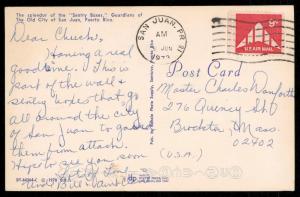 The splendor of the "Sentry Boxes," Guardians of
The Old City of San Juan, Puerto Rico
SAN JUAN, PR
AM
JUN
1973
U.S. AIR MAIL
Dear Chuck,
Having a real
good time. This is
part of the wall &
sentry boxes that go
all around the city
of San Juan to guard
them from attack.
Hope to see you soon
Lots of Love
Uncle Bill & Aunt
Post Card
Master Charles Danforth
276 Quincy St
Brockton, Mass.
02402
(U.S.A.)